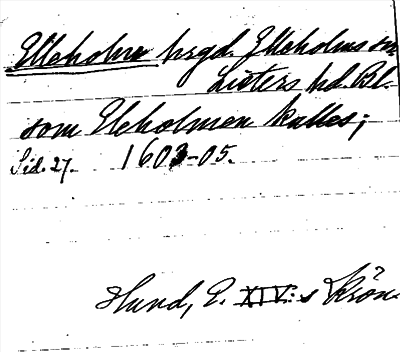 Elleholm hrgd. Elleholms sn
Listers hd. Bl.
som Eleholmen kalles;
Sid. 27. 1603-05.
Hund, E. XIV:s Krön.